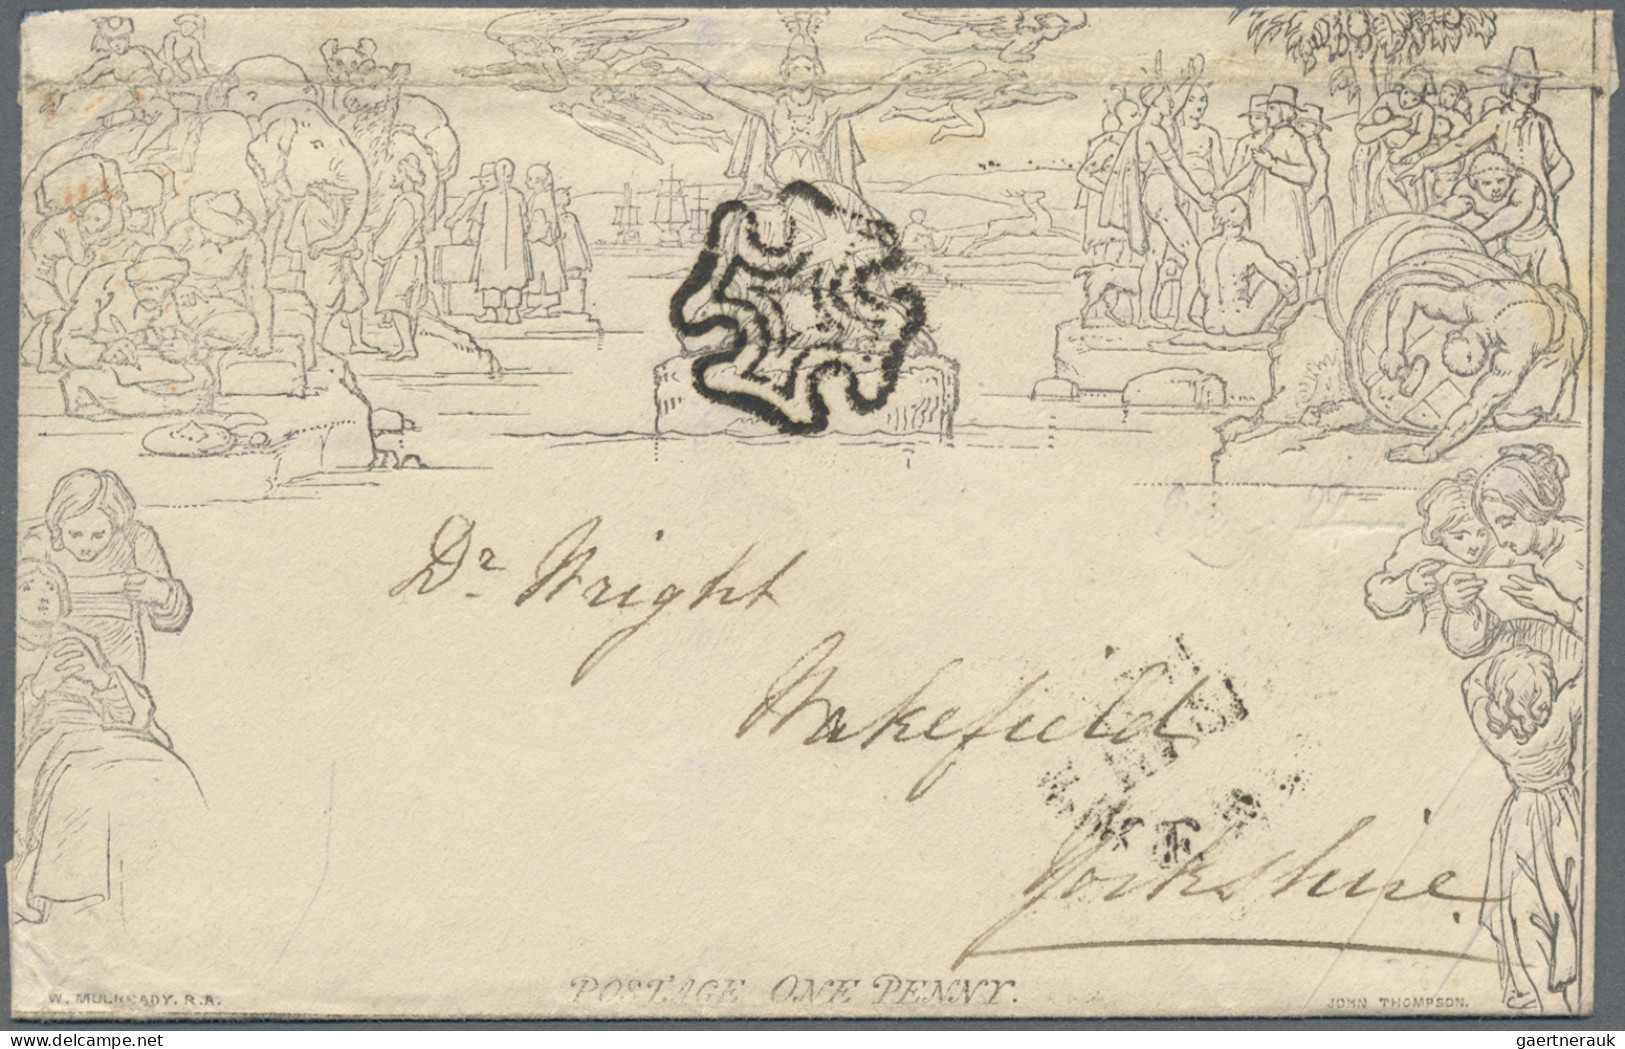 Dr Wright
Wakefield
Yorkshire.
POSTAGE ONE PENNY.
W. MULREADY. R.A.
JOHN THOMPSON.
delcampe.net
gaertnerauk